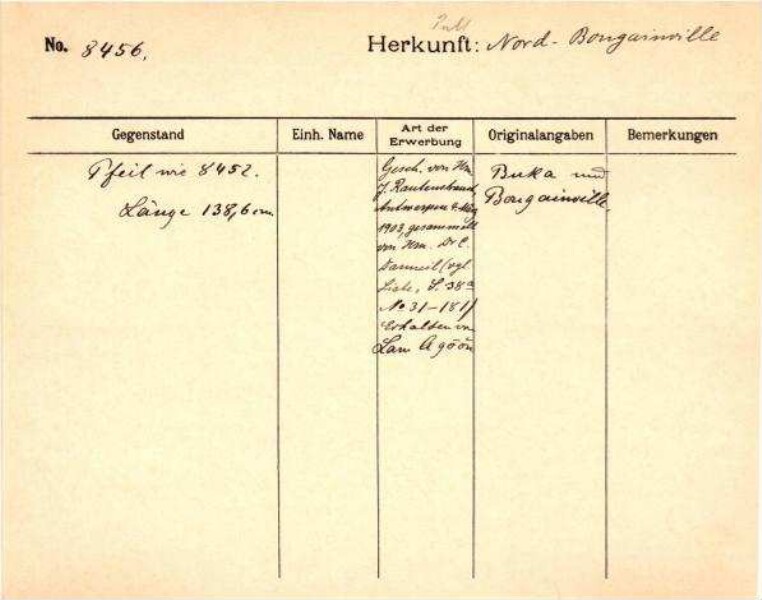 No. 8456.
Herkunft: Nord-Bougainville
Gegenstand
Einh. Name
Art der Erwerbung
Originalangaben
Bemerkungen
Pfeil wie 8452.
Länge 138,6 cm.
Gesch. von Hrn.
J. Rautenstrauch,
Antwerpen
1903, gesammelt
von Hrn. Dr C.
Danneil (vgl.
Liste, S. 38a
No 31-181)
Erhalten von
Buka und
Bougainville.